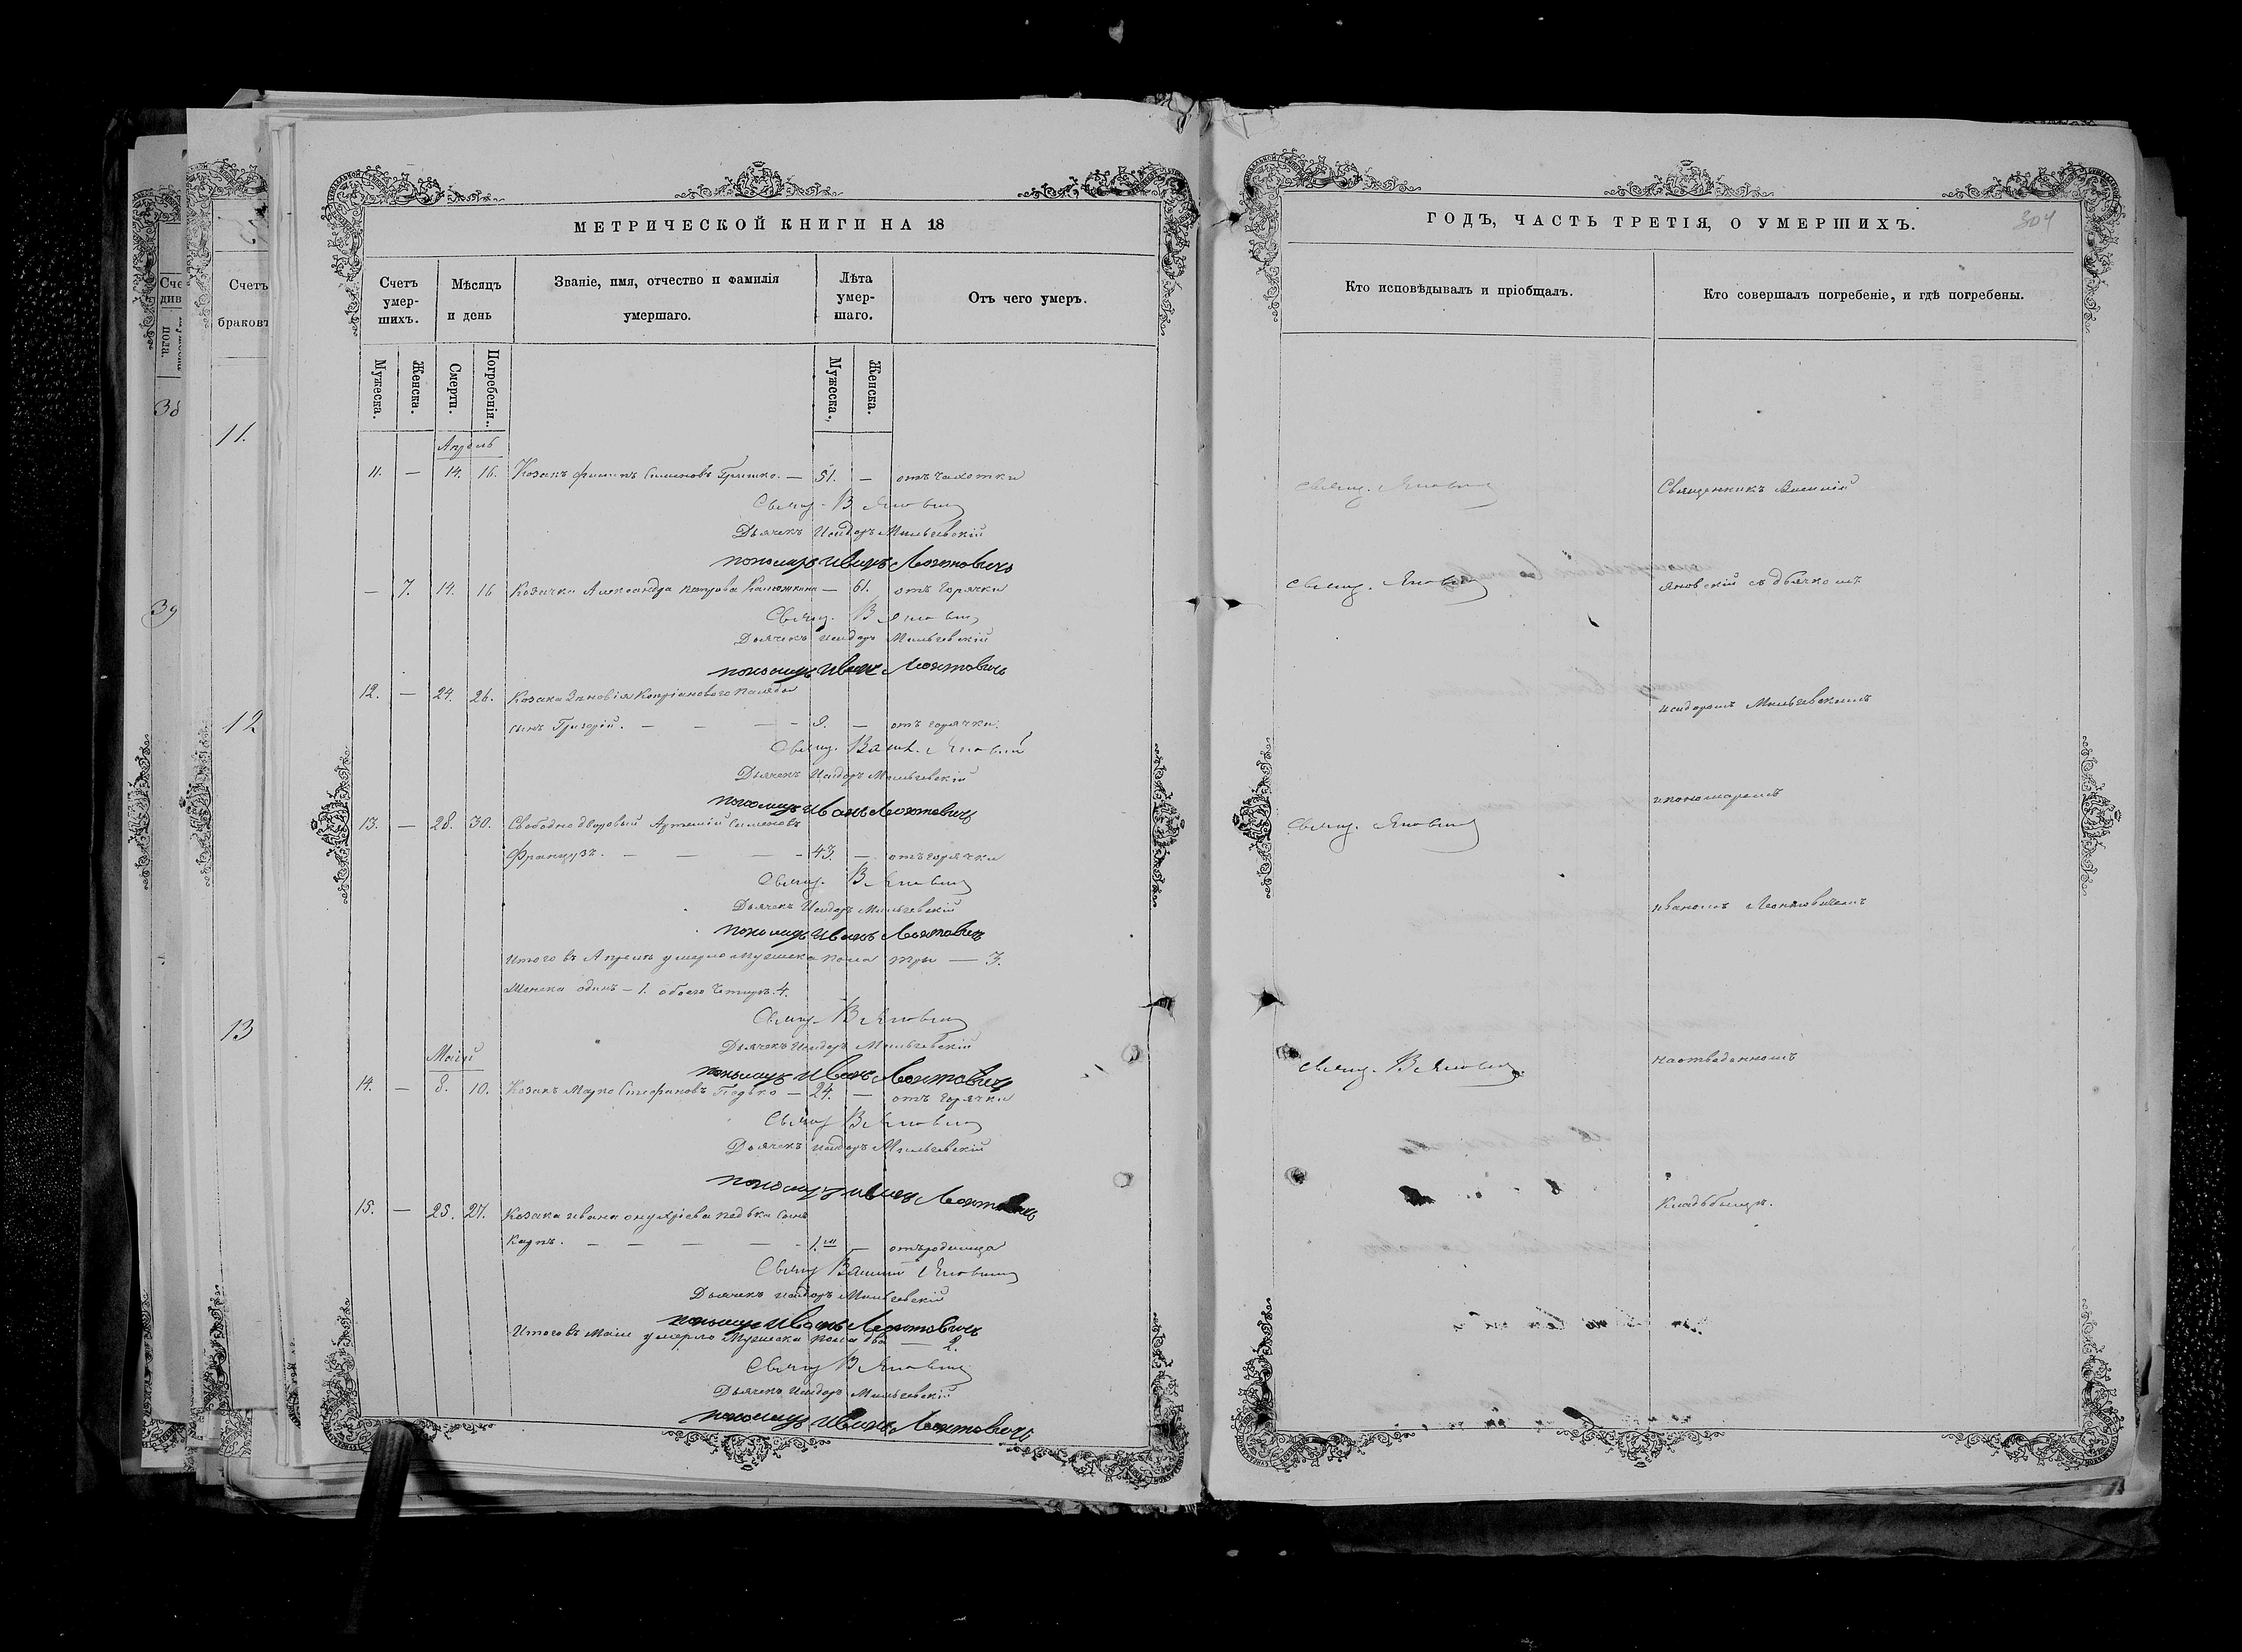 МЕТРИЧЕСКОЙ КНИГИ НА 18
Счетъ умер-шихъ.
Мѣсяцъ и день
Званіе, имя, отчество и фамилія умершаго.
Лѣта умер-шаго.
Отъ чего умеръ.
Мужеска.
Женска.
Смерти.
Погребенія.
Мужеска.
Женска.
Апрѣль
11. — 14. 16. Козакъ Филипъ Симоновъ Гришко. — 51. — отъ чахотки
Свящ. В Яновскій
Дьячекъ Исидоръ Мильчевскій
пономарь Иванъ Леонтовичъ
— 7. 14. 16 Козачка Александра Петрова — 61. отъ горячки
Свящ. В Яновскій
Дьячекъ Исидоръ Мильчевскій
пономарь Иванъ Леонтовичъ
12. — 24. 26. Козака Зиновія
сынъ Григорій. — — — 9. — отъ горячки.
Свящ. Васил. Яновскій
Дьячекъ Исидоръ Мильчевскій
пономарь Иванъ Леонтовичъ
13. — 28. 30. Артемій Симоновъ
Французъ. — — — 43 — отъ горячки
Свящ. В Яновскій
Дьячекъ Исидоръ Мильчевскій
пономарь Иванъ Леонтовичъ
Итого въ Апрелѣ умерло мужеска пола три — 3.
Женска одинъ — 1. обоего четыре. 4.
Свящ. В Яновскій
Дьячекъ Исидоръ Мильчевскій
пономарь Иванъ Леонтовичъ
Маій
14. — 8. 10. Козакъ Марко Стефановъ — 24. — отъ горячки
Свящ В Яновскій
Дьячекъ Исидоръ Мильчевскій
пономарь Иванъ Леонтовичъ
15. — 25. 27. Козака Ивана Онуфріева сынъ
— — — — 1. — отъ родимца
Свящ Василій Яновскій
Дьячекъ Исидоръ Мильчевскій
пономарь Иванъ Леонтовичъ
Итого въ Маіи умерло Мужеска пола два — 2.
Свящ В Яновскій
Дьячекъ Исидоръ Мильчевскій
пономарь Иванъ Леонтовичъ
ГОДЪ, ЧАСТЬ ТРЕТІЯ, О УМЕРШИХЪ.
304
Кто исповѣдывалъ и пріобщалъ.
Кто совершалъ погребеніе, и гдѣ погребены.
Свящ. Яновскій
Священникъ Василій
Свящ. Яновскій
Яновскій съ дьячкомъ
Исидоромъ Мильчевскимъ
и пономаремъ
Свящ. Яновскій
Иваномъ Леонтовичемъ
Свящ. В Яновскій
на отведенномъ
кладбыщѣ.
Счетъ
браковъ
11.
12
13
38
39